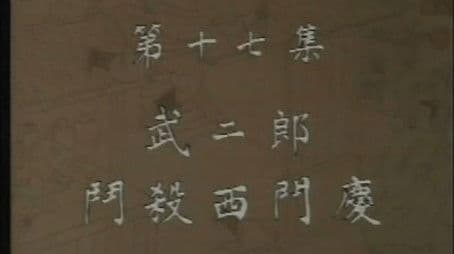 第十七集
武二郎
鬥殺西門慶